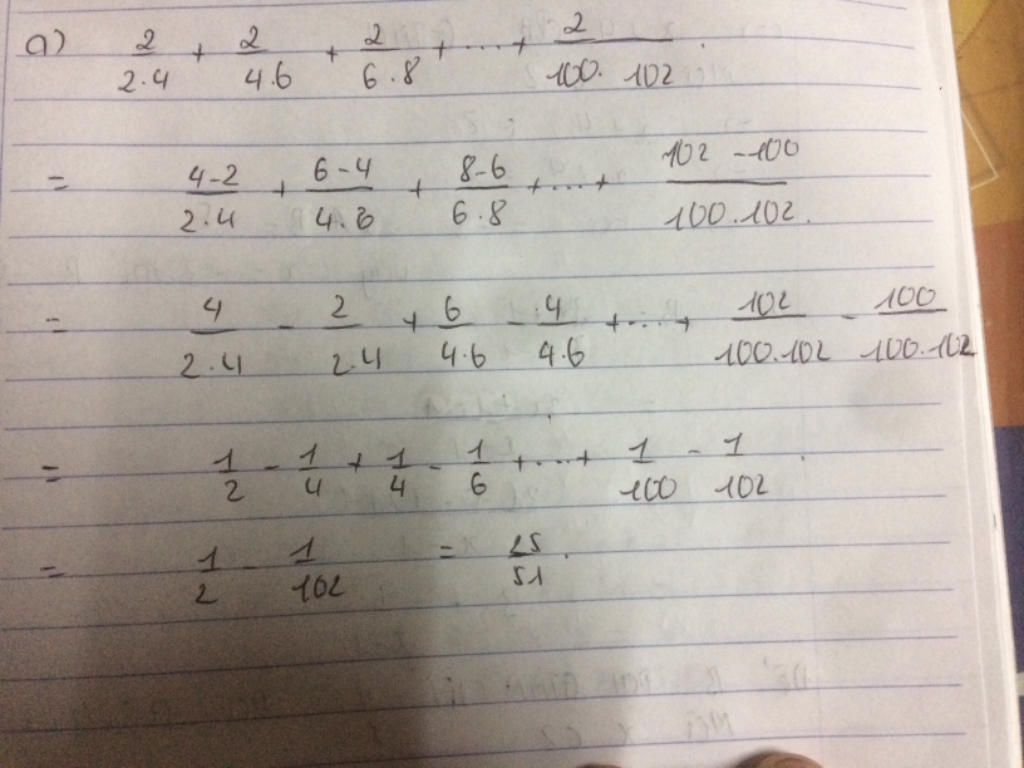 a) 2/2.4 + 2/4.6 + 2/6.8 + ... + 2/100.102.
= 4-2/2.4 + 6-4/4.6 + 8-6/6.8 + ... + 102-100/100.102.
= 4/2.4 - 2/2.4 + 6/4.6 - 4/4.6 + ... + 102/100.102 - 100/100.102
= 1/2 - 1/4 + 1/4 - 1/6 + ... + 1/100 - 1/102.
= 1/2 - 1/102 = 25/51.